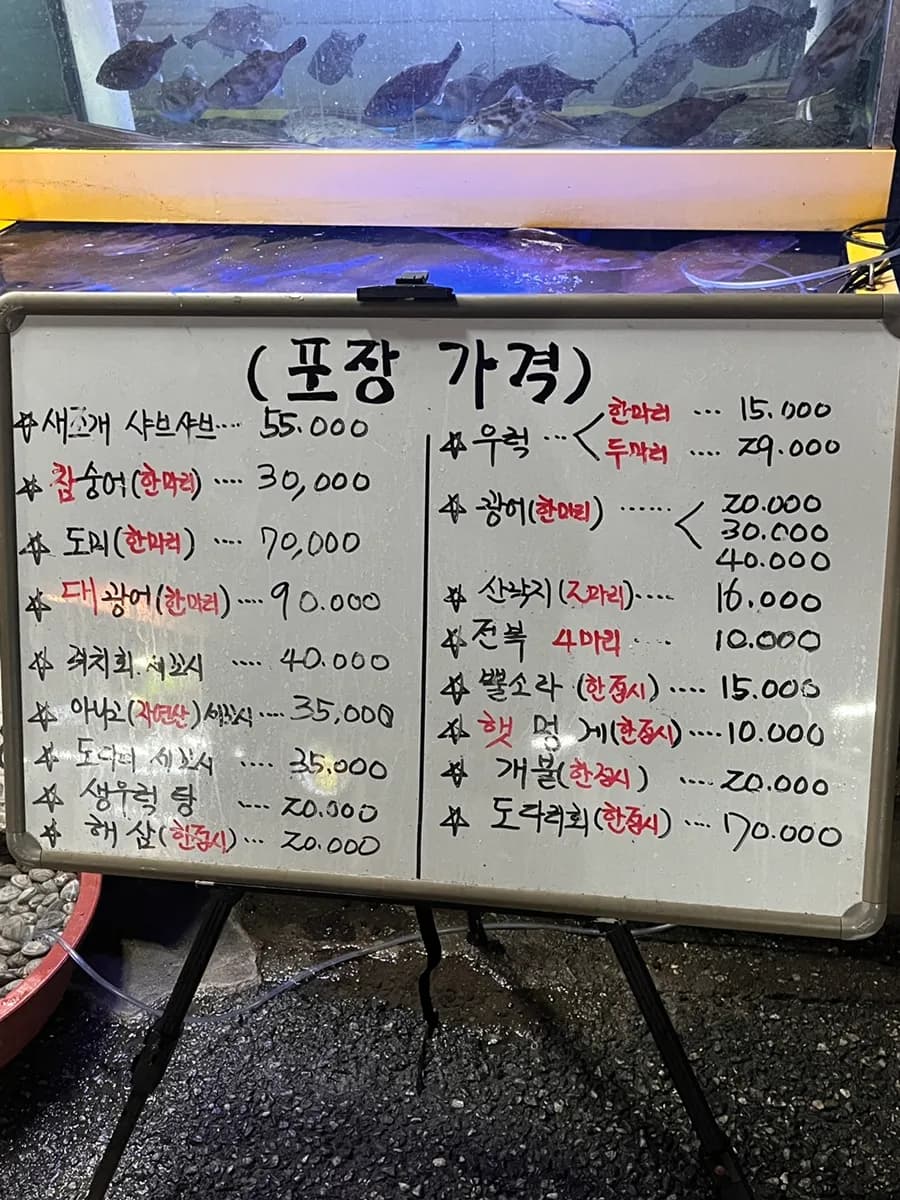 (포장 가격)
☆새조개 샤브샤브.... 55.000
☆참숭어(한마리) .... 30,000
☆도미(한마리) .... 70,000
☆대광어(한마리) .... 90.000
☆쥐치회.세꼬시 .... 40.000
☆아나고(자연산)세꼬시 .... 35,000
☆도다리 세꼬시 .... 35.000
☆생우럭 탕 .... 20.000
☆해삼(한접시) ... 20.000
☆우럭 ... < 한마리 ... 15.000
두마리 .... 29.000
☆광어(한마리) ...... < 20.000
30.000
40.000
☆산낙지(2마리).... 16.000
☆전복 4마리 ... 10.000
☆뿔소라 (한접시) .... 15.000
☆햇 멍 게(한접시) .... 10.000
☆개불(한접시) .... 20.000
☆도다리회(한접시) ... 70.000